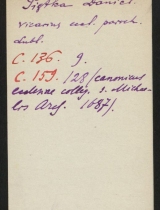 Tiftka Daniel
vicarius eccl. paroch.
dubl.
C. 136. 9.
C. 159. 128 (canonicus
ecclesiae colleg. s. Michae-
lis Arg. 1687).